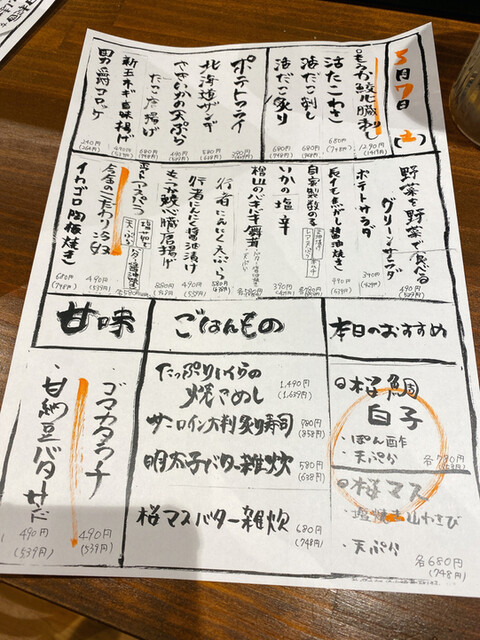 5月7日(土)
もうか鮫心臓刺し 1,290円 (1,419円)
活たこわさ 680円 (748円)
活だこ刺し 680円 (748円)
活だこ炙り 680円 (748円)
ポテトフライ
北海道ザンギ 580円 (638円)
やせいかの天ぷら
たこ唐揚げ 680円 (748円)
新玉ネギ旨味揚げ 490円 (539円)
男爵コロッケ 240円 (264円)
野菜を野菜で食べる 490円 (539円)
グリーンサラダ
ポテトサラダ 390円 (429円)
長イモ焦がし醤油焼き 490円 (539円)
いかの塩辛 390円
行者にんにく天ぷら 580円
行者にんにく醤油漬け 490円 (539円)
もうか鮫心臓唐揚げ 880円
今金のこだわり冷奴 490円 (539円)
イカゴロ陶板焼き 680円 (748円)
本日のおすすめ
桜鯛
白子
・ぽん酢
・天ぷら
各790円
桜マス
・塩焼き山わさび
・天ぷら
各680円
(748円)
ごはんもの
たっぷりいくらの
焼きめし 1,490円 (1,639円)
サーロイン大判炙り寿司 780円 (858円)
明太子バター雑炊 580円 (638円)
桜マスバター雑炊 680円 (748円)
甘味
ゴマカタラーナ 490円 (539円)
甘納豆バターサンド 490円 (539円)